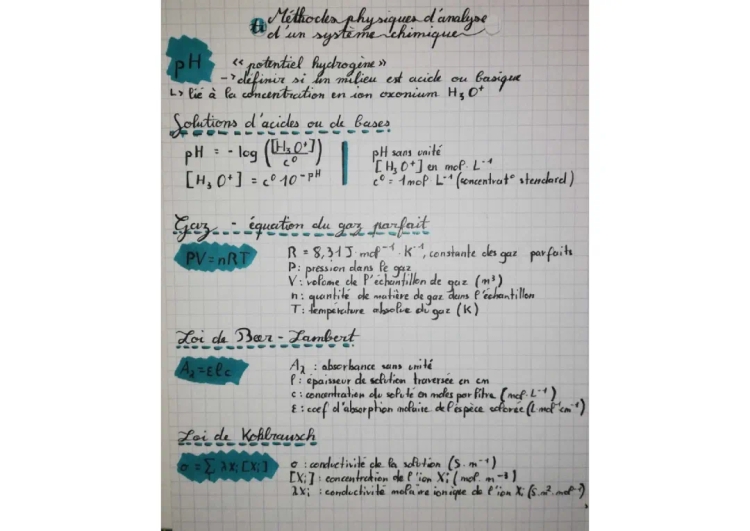 Méthodes physiques d'analyse
d'un système chimique
pH « potentiel hydrogène »
-> définir si un milieu est acide ou basique
↳ lié à la concentration en ion oxonium H₃O⁺
Solutions d'acides ou de bases
pH = - log ([H₃O⁺]/c⁰) | pH sans unité
[H₃O⁺] en mol. L⁻¹
[H₃O⁺] = c⁰ 10⁻ᵖᴴ c⁰ = 1 mol L⁻¹ (concentrat° standard)
Gaz - équation du gaz parfait
PV = nRT R = 8,31 J. mol⁻¹. K⁻¹, constante des gaz parfaits
P : pression dans le gaz
V : volume de l'échantillon de gaz (m³)
n : quantité de matière de gaz dans l'échantillon
T : température absolue du gaz (K)
Loi de Beer - Lambert
Aλ = εlc Aλ : absorbance sans unité
l : épaisseur de solution traversée en cm
c : concentration du soluté en moles par litre (mol. L⁻¹)
ε : coef d'absorption molaire de l'espèce colorée (L mol⁻¹ cm⁻¹)
Loi de Kohlrausch
σ = Σ λXi [Xi] σ : conductivité de la solution (S. m⁻¹)
[Xi] : concentration de l'ion Xi (mol. m⁻³)
λXi : conductivité molaire ionique de l'ion Xi (S. m². mol⁻¹)